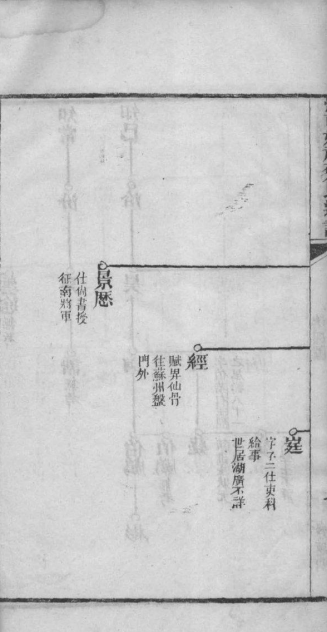 庭
字子二仕吏科
給事
世居湖廣不詳
經
賦昇仙骨
往蘇州盤
門外
景歷
仕尚書授
征南將軍